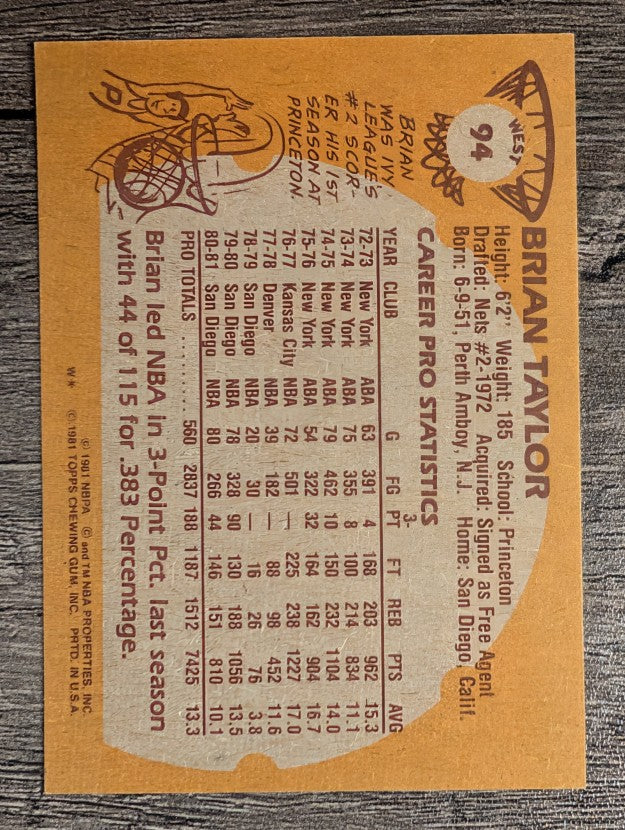 WEST
94
BRIAN TAYLOR
Height: 6'2" Weight: 185 School: Princeton
Drafted: Nets #2-1972 Acquired: Signed as Free Agent
Born: 6-9-51, Perth Amboy, N.J. Home: San Diego, Calif.
BRIAN
WAS IVY
LEAGUE'S
#2 SCOR-
ER HIS 1ST
SEASON AT
PRINCETON.
P
CAREER PRO STATISTICS
3-
YEAR CLUB G FG PT FT REB PTS AVG
72-73 New York ABA 63 391 4 168 203 962 15.3
73-74 New York ABA 75 355 8 100 214 834 11.1
74-75 New York ABA 79 462 10 150 232 1104 14.0
75-76 New York ABA 54 322 32 164 162 904 16.7
76-77 Kansas City NBA 72 501 — 225 238 1227 17.0
77-78 Denver NBA 39 182 — 88 98 452 11.6
78-79 San Diego NBA 20 30 — 16 26 76 3.8
79-80 San Diego NBA 78 328 90 130 188 1056 13.5
80-81 San Diego NBA 80 266 44 146 151 810 10.1
PRO TOTALS .......... 560 2837 188 1187 1512 7425 13.3
Brian led NBA in 3-Point Pct. last season
with 44 of 115 for .383 Percentage.
© 1981 NBPA © and TM NBA PROPERTIES, INC.
W* © 1981 TOPPS CHEWING GUM, INC. PRTD. IN U.S.A.